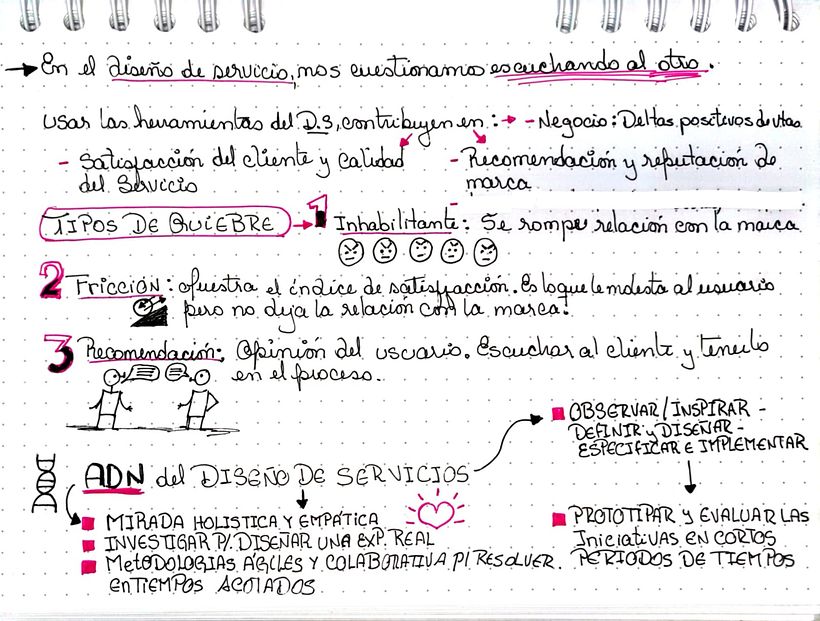 → En el diseño de servicio, nos cuestionamos escuchando al otro.
usar las herramientas del D.S, contribuyen en: → - Negocio: Deltas positivos de vtas
- Satisfacción del cliente y calidad del Servicio
- Recomendación y reputación de marca
TIPOS DE QUIEBRE → 1 Inhabilitante: Se rompe relación con la marca
2 Fricción: Muestra el índice de satisfacción. Es lo que le molesta al usuario
pero no deja la relación con la marca.
3 Recomendación: Opinión del usuario. Escuchar al cliente y tenerlo
en el proceso.
ADN del DISEÑO DE SERVICIOS
MIRADA HOLISTICA Y EMPÁTICA
INVESTIGAR P/. DISEÑAR UNA EXP. REAL
MetODOLOGIAS AGILES Y COLABORATIVA P/ RESOLVER
en TIEMPOS ACOTADOS
OBSERVAR/INSPIRAR -
DEFINIR y DISEÑAR -
ESPECIFICAR E IMPLEMENTAR
PROTOTIPAR Y EVALUAR LAS
Iniciativas EN CORTOS
PERIODOS DE TIEMPOS